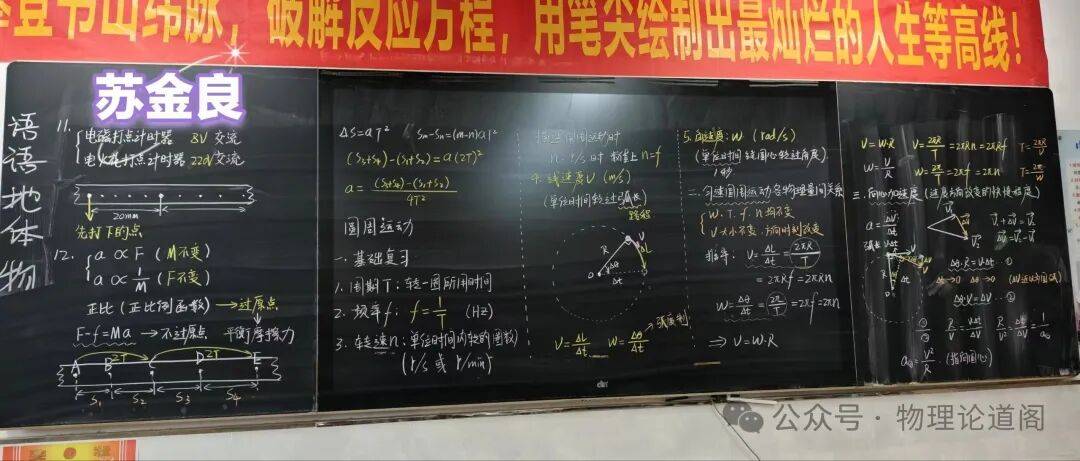 登书山纬脉，破解反应方程，用笔尖绘制出最灿烂的人生等高线！
苏金良
语
语
地
体
物
11.
电磁打点计时器 8V 交流
电火花打点计时器 220V交流
20mm
先打下的点
12.
a ∝ F (M不变)
a ∝ 1/M (F不变)
正比 (正比例函数) → 过原点
F-f=Ma → 不过原点 平衡摩擦力
A B 2T D 2T E
S₁ S₂ S₃ S₄
ΔS=aT² Sm-Sn=(m-n)aT²
(S₃+S₄)-(S₁+S₂)=a(2T)²
a = ((S₃+S₄)-(S₁+S₂))/4T²
圆周运动
一. 基础复习
1. 周期T：转一圈所用时间
2. 频率f：f=1/T (Hz)
3. 转速n：单位时间内转的圈数)
(r/s 或 r/min)
n=f
4. 线速度V (m/s)
(单位时间转过弧长)
路程
R Δθ ΔL V
O Δt
V=ΔL/Δt W=Δθ/Δt → 弧度制
5. 角速度：W (rad/s)
(单位时间绕圆心转过角度)
1秒
二. 匀速圆周运动各物理量间关系
W.T.f.n 均不变
V大小不变.方向时刻改变
V=ΔL/Δt=2πR/T
=2πRf=2πRn
W=Δθ/Δt=2π/T=2πf=2πn
⇒ V=W·R
V=W·R V=2πR/T=2πRn=2πRf T=2πR/V
W=V/R W=2π/T=2πn=2πf T=2π/W
三. 向心加速度 (速度方向改变的快慢程度)
a=ΔV/Δt
V₁+ΔV=V₂
ΔV=V₂-V₁
Δθ·R=V·Δt ①
Δt→0 Δθ→0
Δθ·V=ΔV ②
①/② R/V=VΔt/ΔV R/V²=Δt/ΔV=1/a
aₙ=V²/R (指向圆心)
公众号·物理论道阁